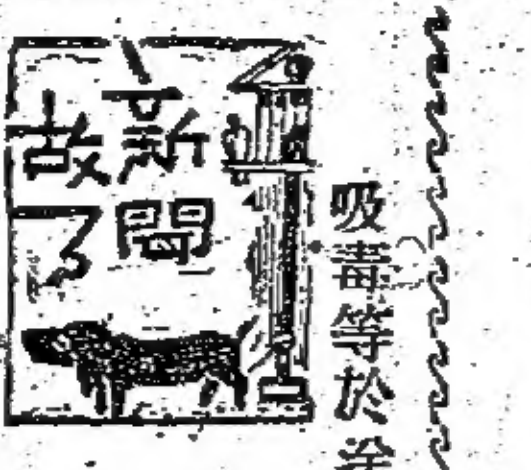 吸毒等於
新聞
故